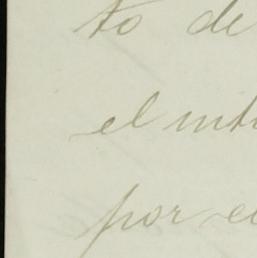 to de
el inte
por e